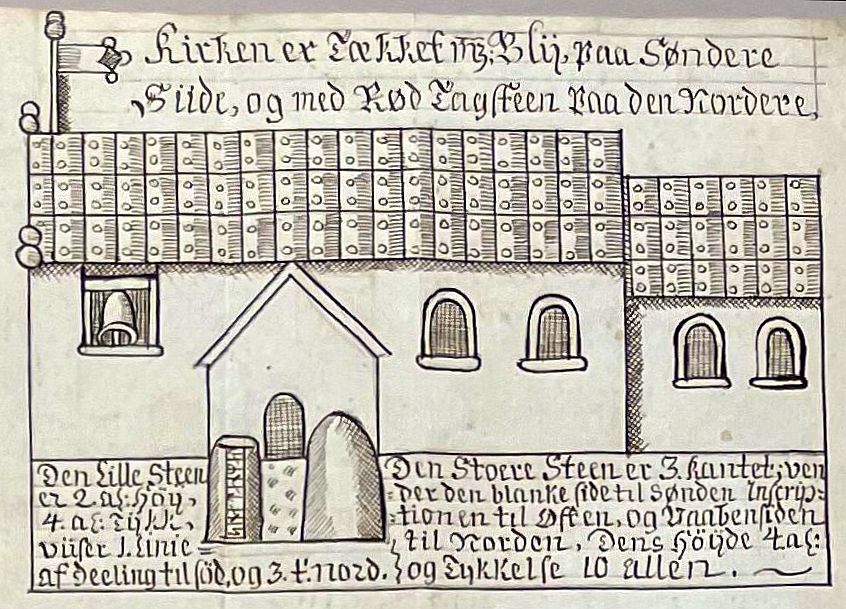 Kirken er Tækket m; Blÿ, paa Søndere
Siide, og med Rød Tagsteen Paa den Nordere,
Den Lille Steen
er 2. al: Höy,
4. al: Tÿkk,
viiser 1. Linie =
af Deeling til söd, og 3. t. nord.
Den Stoere Steen er 3. kantet; ven
=der den blanke side til Sønden Inscrip:
=tionen til Østen, og Vaabensiden
til Norden, Dens Höÿde 4 al:
og Tykkelse 10 allen.